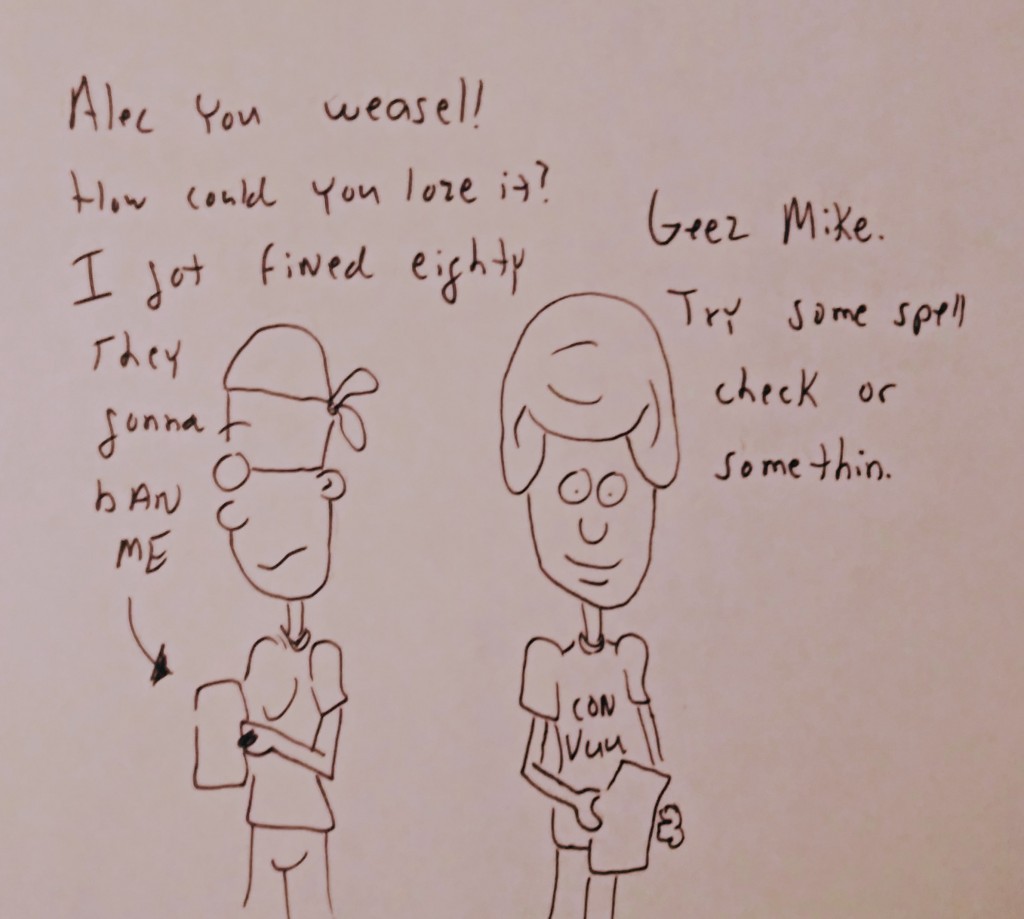 Alec You weasel!
How could you lose it?
I got fined eighty
They
gonna
bAN
ME
Geez Mike.
Try some spell
check or
somethin.
CON
Vuu